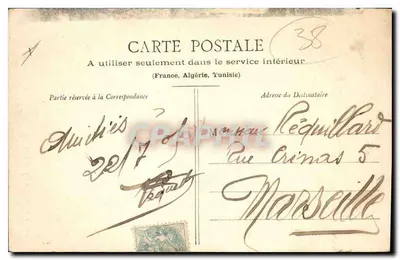 38
CARTE POSTALE
A utiliser seulement dans le service intérieur
(France, Algérie, Tunisie)
Partie réservée à la Correspondance
Adresse du Destinataire
Amitiés
22/7
Réquillard
Rue Crinas 5
Marseille